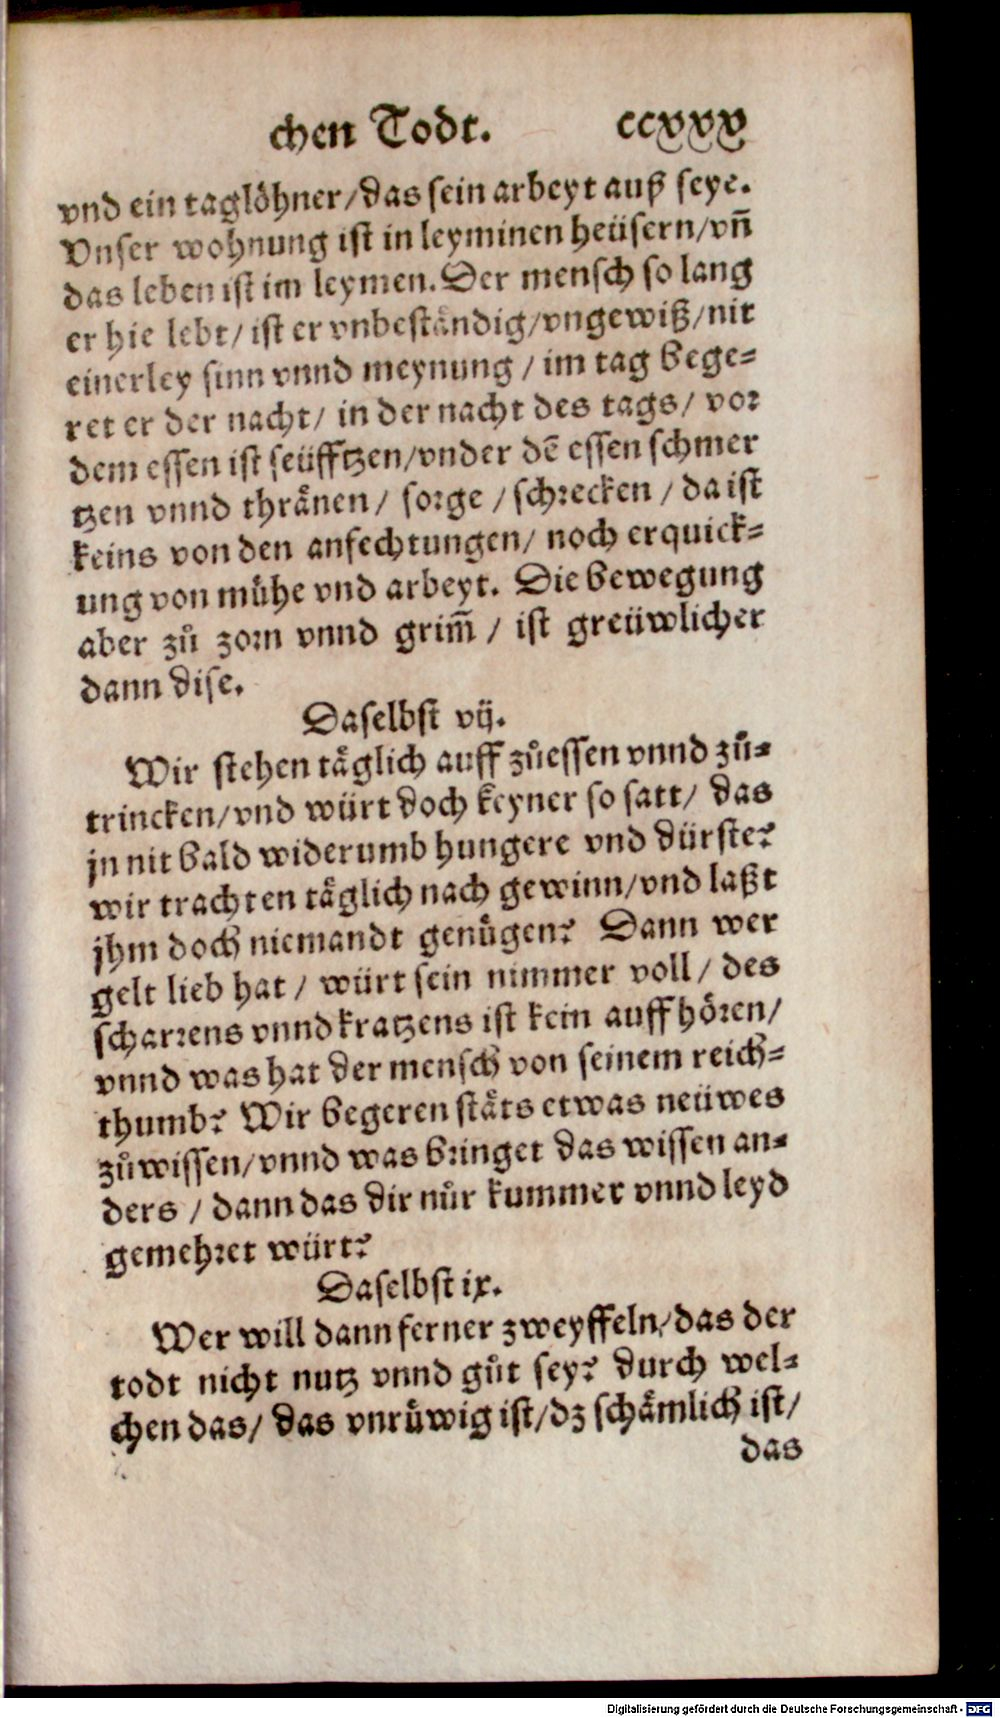 chen Todt. ccxxx
vnd ein taglöhner/das sein arbeyt auß seye.
Vnser wohnung ist in leyminen heüsern/vñ
das leben ist im leymen. Der mensch so lang
er hie lebt/ ist er vnbeständig/vngewiß/nit
einerley sinn vnnd meynung / im tag bege-
ret er der nacht/ in der nacht des tags/ vor
dem essen ist seüfftzen/vnder dē essen schmer
tzen vnnd thrånen/ sorge / schrecken / da ist
keins von den anfechtungen/ noch erquick-
ung von mühe vnd arbeyt. Die bewegung
aber zů zorn vnnd grim̄ / ist greüwlicher
dann dise.
Daselbst vij.
Wir stehen tåglich auff zůessen vnnd zů-
trincken/vnd würt doch keyner so satt/ das
jn nit bald widerumb hungere vnd dürste?
wir trachten tåglich nach gewinn/vnd laßt
jhm doch niemandt genůgen? Dann wer
gelt lieb hat / würt sein nimmer voll / des
scharrens vnnd kratzens ist kein auff hören/
vnnd was hat der mensch von seinem reich-
thumb? Wir begeren ståts etwas neüwes
zůwissen/vnnd was bringet das wissen an-
ders / dann das dir nůr kummer vnnd leyd
gemehret würt?
Daselbst ix.
Wer will dann ferner zweyffeln/das der
todt nicht nutz vnnd gůt sey? durch wel-
chen das/ das vnrůwig ist/dz schåmlich ist/
das
Digitalisierung gefördert durch die Deutsche Forschungsgemeinschaft - DFG